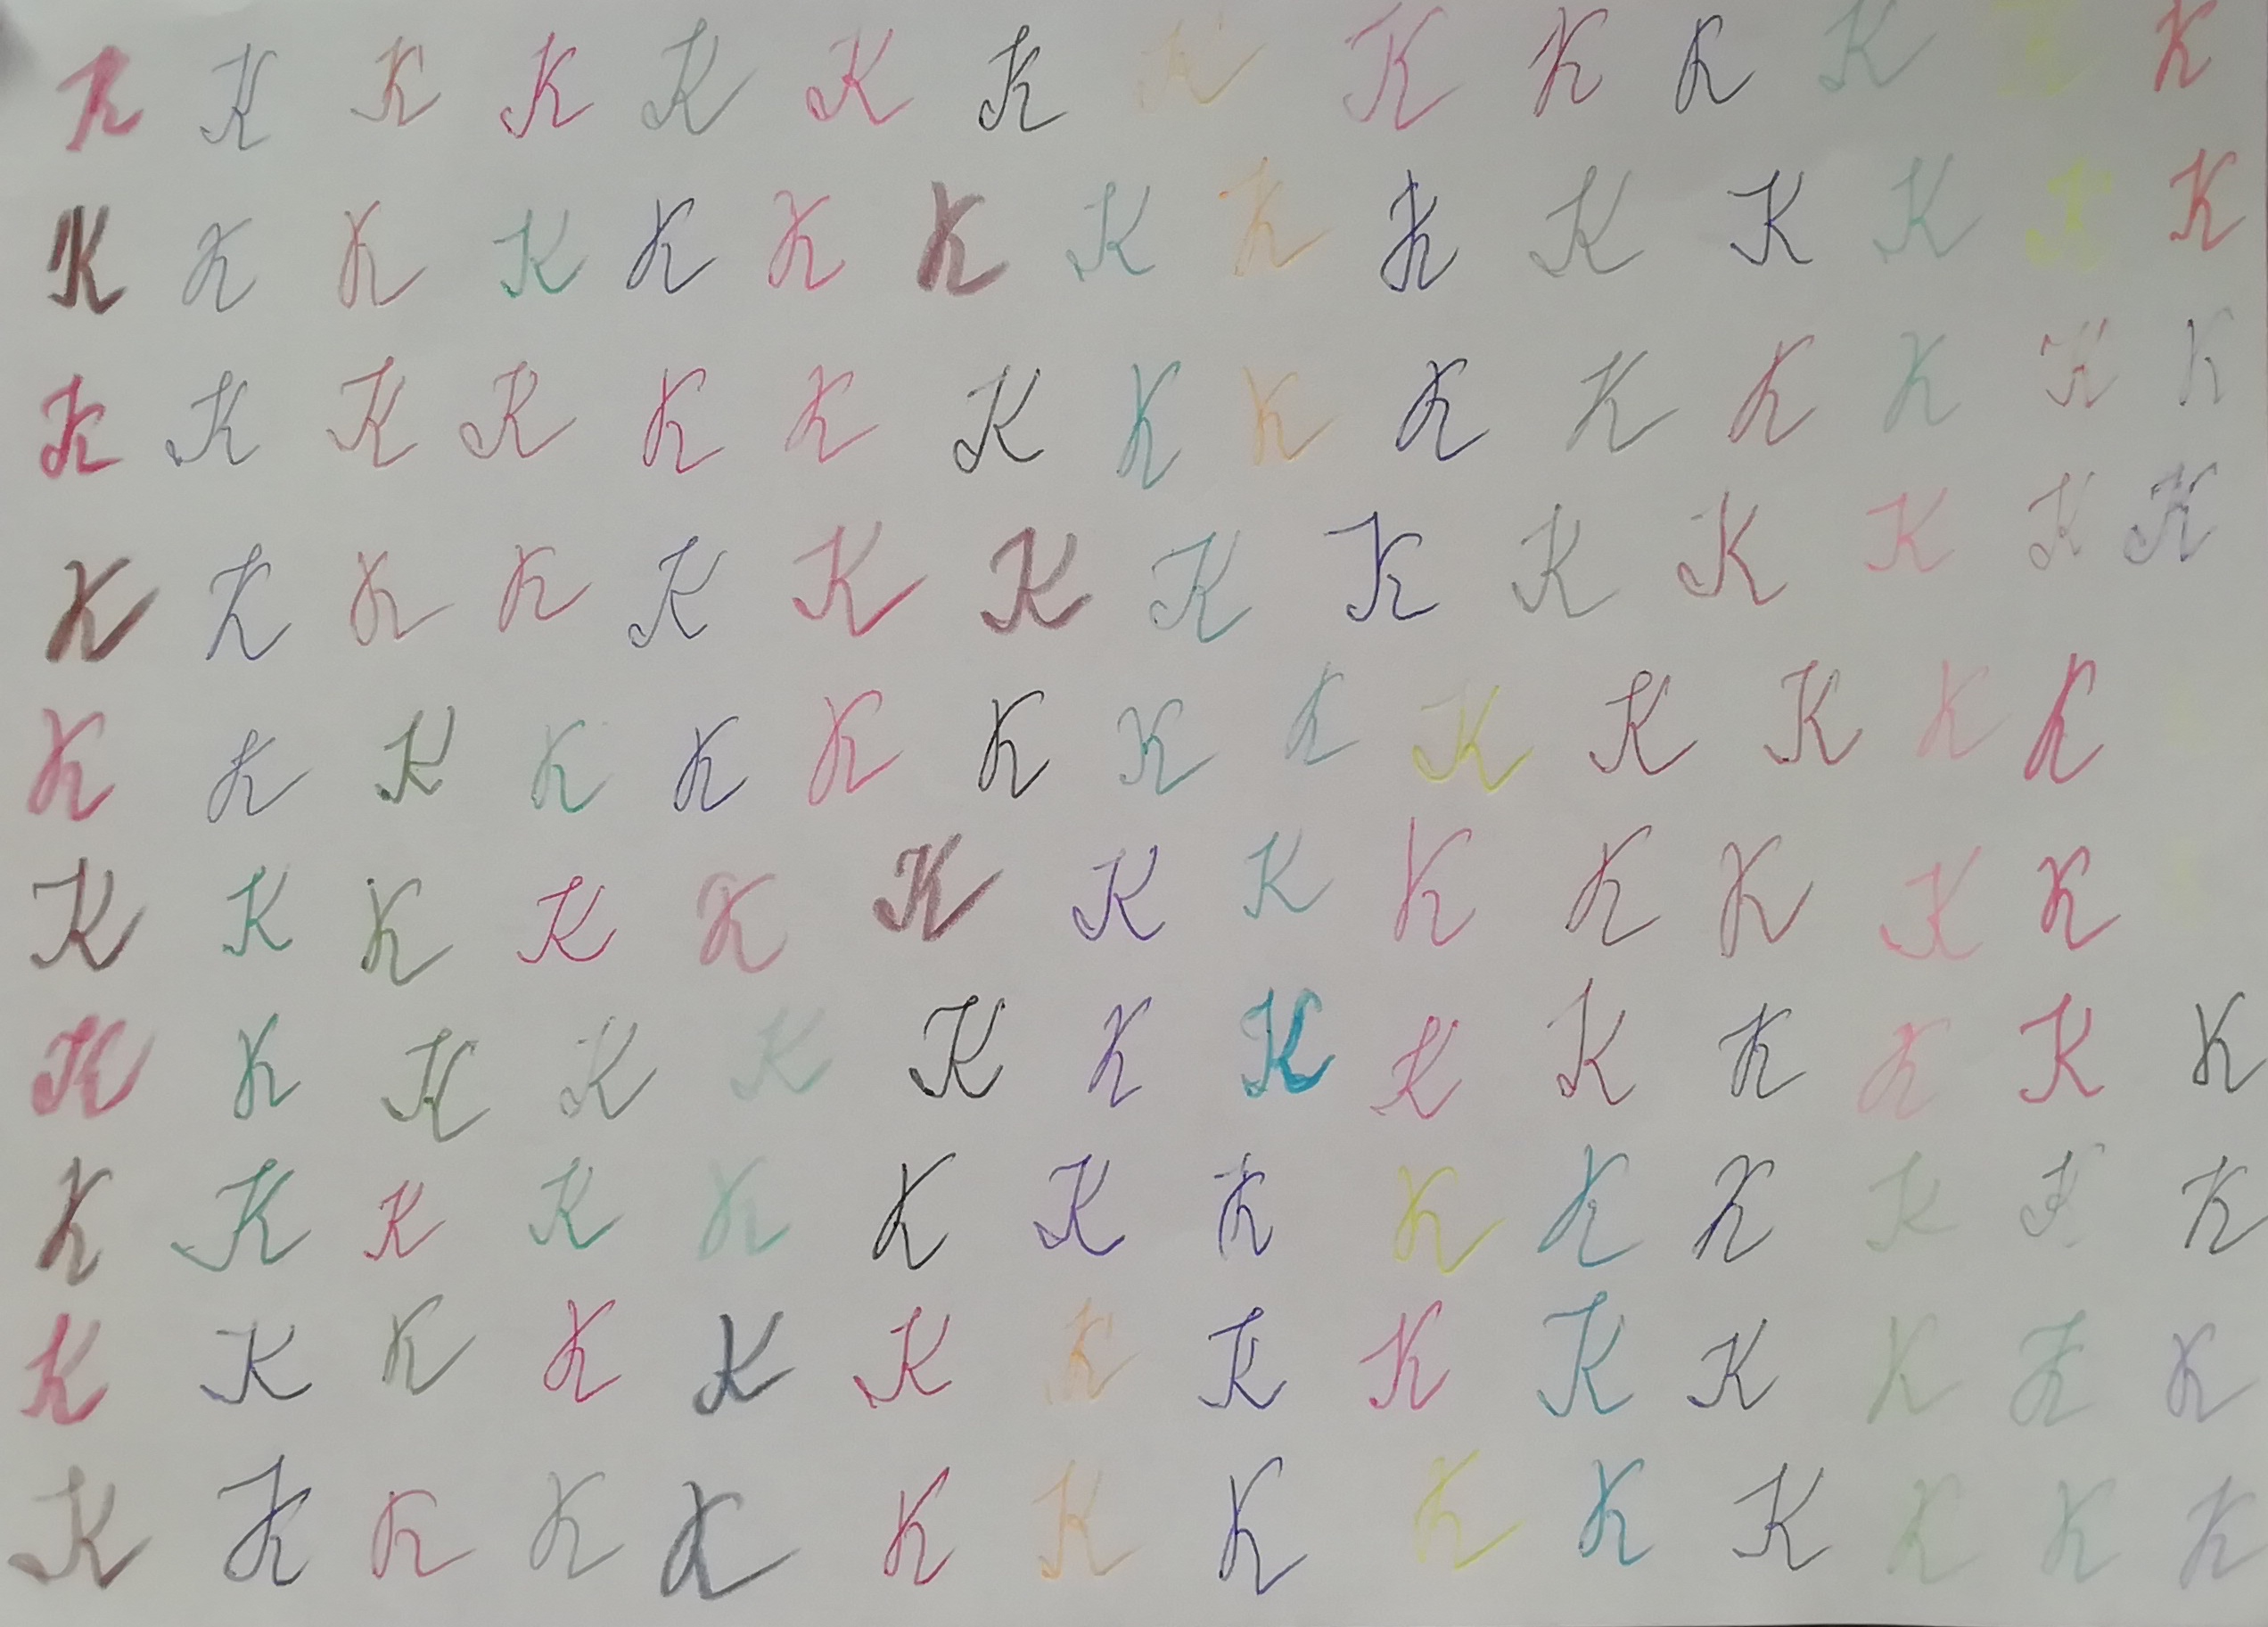 K K K K K K K K K K K K K K
K K K K K K K K K K K K K K K
K K K K K K K K K K K K K K K
K K K K K K K K K K K K K K
K K K K K K K K K K K K K K
K K K K K K K K K K K K K
K K K K K K K K K K K K K K
K K K K K K K K K K K K K K
K K K K K K K K K K K K K K
K K K K K K K K K K K K K K